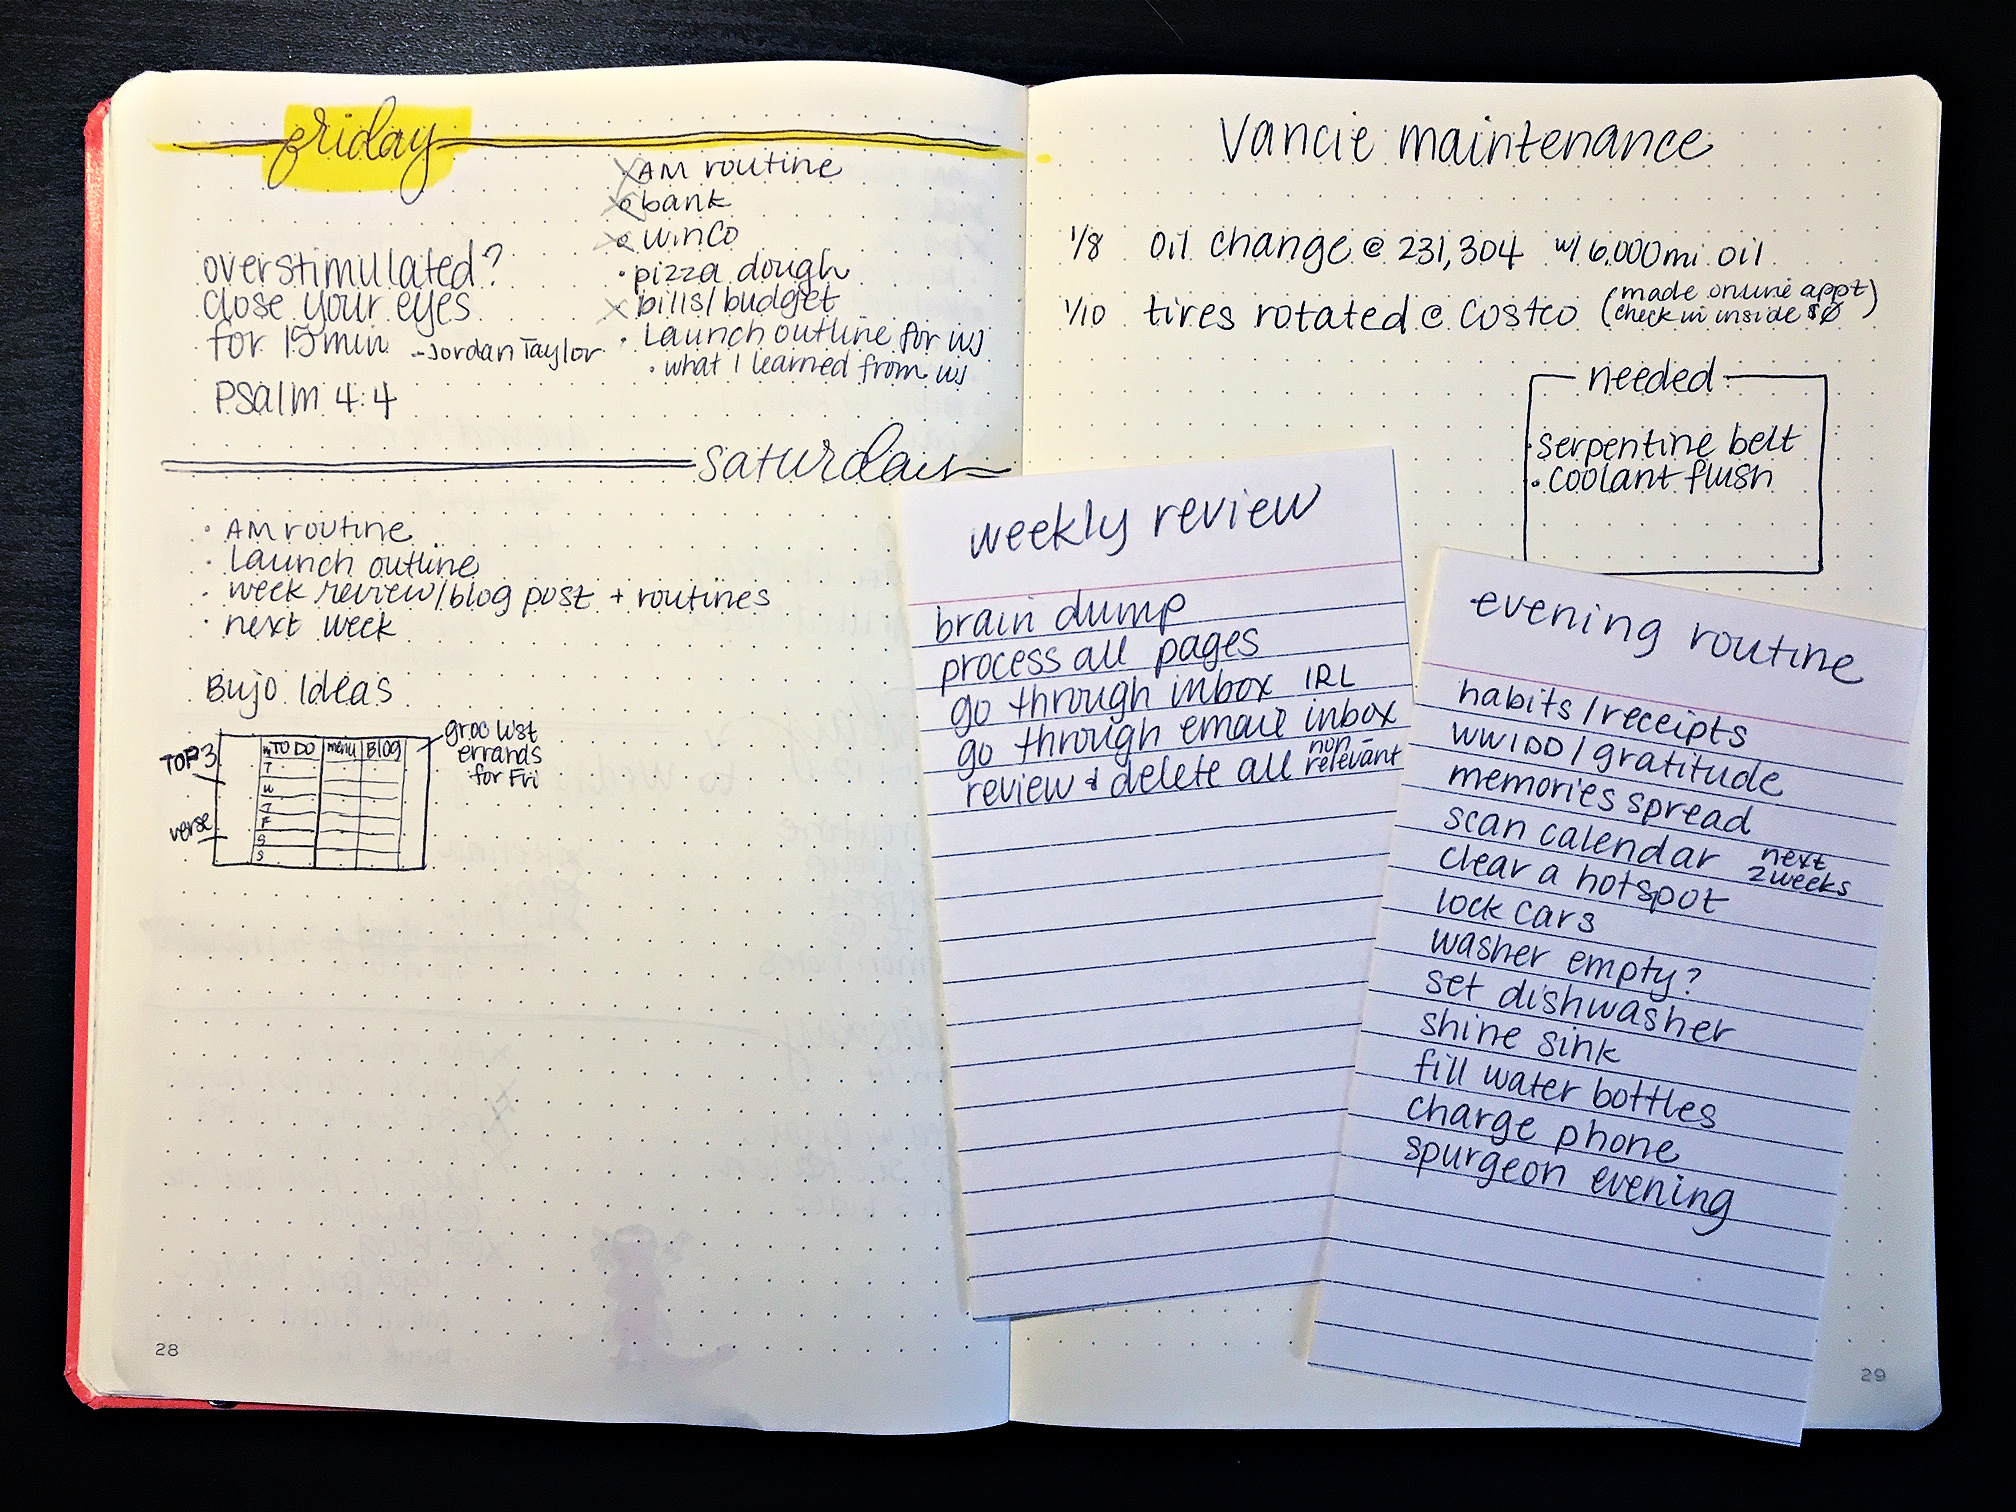 friday
overstimulated?
close your eyes
for 15 min - Jordan Taylor
Psalm 4:4
AM routine
bank
WinCo
• pizza dough
bills/budget
• Launch outline for WJ
• what I learned from WJ
saturday
• AM routine
• Launch outline
• week review/blog post + routines
• next week
Bujo Ideas
TOP 3
verse
M TO DO menu Blog
T
W
T
F
S
S
groc list
errands
for Fri
28
Vancie maintenance
1/8 oil change @ 231,304 w/ 6,000mi oil
1/10 tires rotated @ Costco (made online appt
check in inside $0)
needed
• serpentine belt
• coolant flush
weekly review
brain dump
process all pages
go through inbox IRL
go through email inbox
review & delete all non-
relevant
evening routine
habits/receipts
WWIDD/gratitude
memories spread
scan calendar next
2 weeks
clear a hotspot
lock cars
washer empty?
set dishwasher
shine sink
fill water bottles
charge phone
spurgeon evening
29